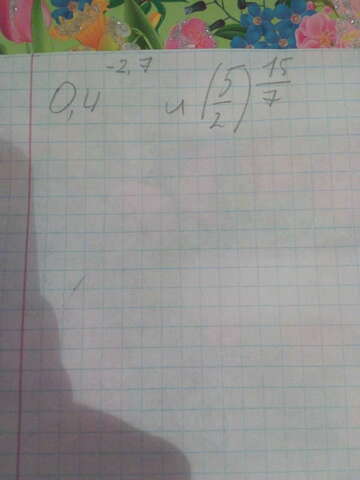 0,4^{-2,7} и (5/2)^{15/7}